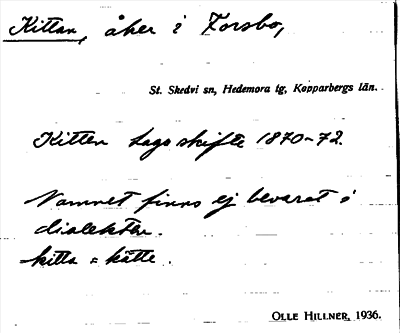 Kittan, åker i Forsbo,
St. Skedvi sn, Hedemora tg, Kopparbergs län.
Kitten Laga skifte 1870-72.
Namnet finns ej bevarat i
dialekten.
kitta = kätte.
OLLE HILLNER, 1936.